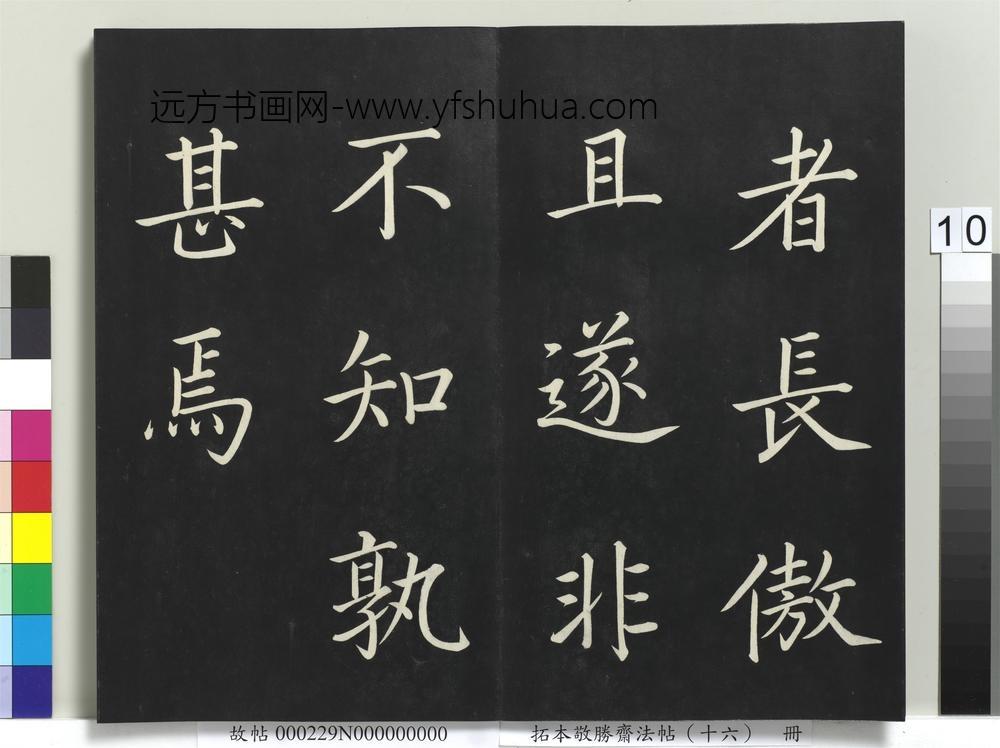 远方书画网-www.yfshuhua.com
者長傲
且遂非
不知孰
甚焉
10
故帖 000229N000000000
拓本敬勝齋法帖（十六） 冊